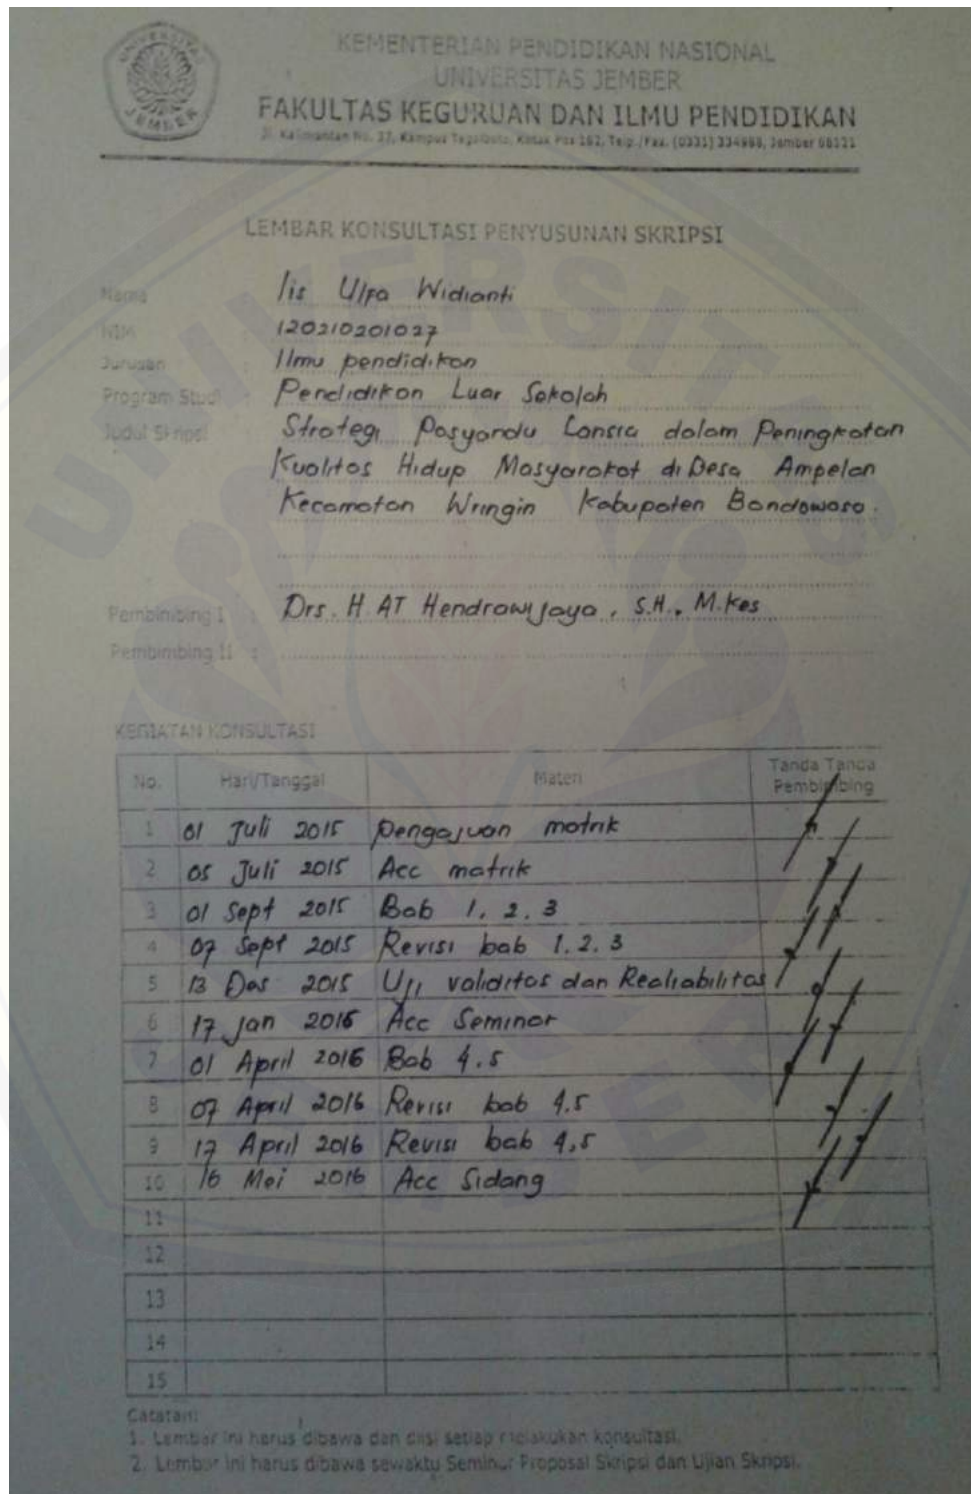 UNIVERSITAS
JEMBER
KEMENTERIAN PENDIDIKAN NASIONAL
UNIVERSITAS JEMBER
FAKULTAS KEGURUAN DAN ILMU PENDIDIKAN
Jl. Kalimantan No. 37, Kampus Tegalboto, Kotak Pos 162, Telp./Fax. (0331) 334988, Jember 68121
LEMBAR KONSULTASI PENYUSUNAN SKRIPSI
Nama Iis Ulfa Widianti
NIM : 120210201027
Jurusan : Ilmu pendidikan
Program Studi : Pendidikan Luar Sekolah
Judul Skripsi : Strategi Posyandu Lansia dalam Peningkatan
Kualitas Hidup Masyarakat di Desa Ampelan
Kecamatan Wringin Kabupaten Bondowoso.
Pembimbing I : Drs. H. AT Hendrawijaya, S.H., M.Kes
Pembimbing II :
KEGIATAN KONSULTASI
No. Hari/Tanggal Materi Tanda Tanda Pembimbing
1 01 Juli 2015 Pengajuan matrik
2 05 Juli 2015 Acc matrik
3 01 Sept 2015 Bab 1. 2. 3
4 07 Sept 2015 Revisi bab 1. 2. 3
5 13 Des 2015 Uji validitas dan Realiabilitas
6 17 Jan 2016 Acc Seminar
7 01 April 2016 Bab 4.5
8 07 April 2016 Revisi bab 4.5
9 17 April 2016 Revisi bab 4,5
10 16 Mei 2016 Acc Sidang
11
12
13
14
15
Catatan:
1. Lembar ini harus dibawa dan diisi setiap melakukan konsultasi.
2. Lembar ini harus dibawa sewaktu Seminar Proposal Skripsi dan Ujian Skripsi.